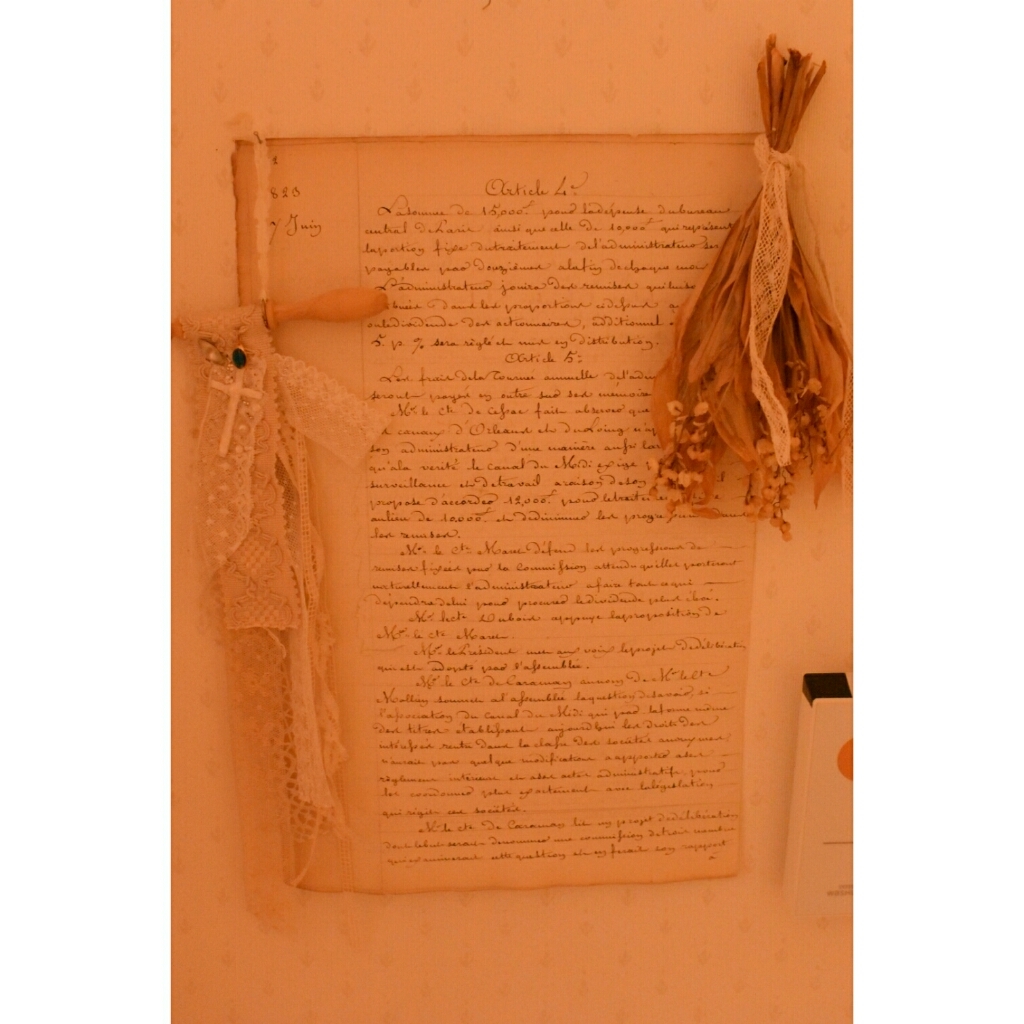 1
823
7 Juin
Article 4.e
La somme de 15,000.f pour la dépense du bureau
central de Paris ainsi que celle de 10,000.f qui représent
la portion fixe du traitement de l'administrateur ser
payables par douzième à la fin de chaque mois
L'administrateur jouira des remises qui lui so
buées dans les proportions ci-dessus
dividende des actionnaires, additionnel
5. p. % sera réglé et mis en distribution.
Article 5.e
Les frais de la Tournée annuelle de l'adm
seront payés en outre sur ses mémoires
Mr. le Cte. de Cessac fait observer que
canaux d'Orléans et du Loing n'
son administrateur d'une manière aussi lar
qu'à la verité le canal du Midi exige p
surveillance et de travail a raison de son
propose d'accorder 12,000.f pour le traitement
au lieu de 10,000.f et de diminuer les progressions dans
les remises.
Mr. le Cte. Maret défend les progressions de
remises fixées par la Commission attendu qu'elles porteront
naturellement l'administrateur a faire tout ce qui
dépendra de lui pour procurer le dividende plus élevé.
Mr. le Cte. Dubois appuye la proposition de
Mr. le Cte. Maret.
Mr. le Président met aux voix le projet de délibération
qui est adopté par l'assemblée.
Mr. le Cte. de Caraman au nom de Mr. le Cte
Mollien soumet a l'assemblée la question de savoir, si
l'association du Canal du Midi qui par la forme même
des titres établissant aujourd'hui les droits des
intéressés rentre dans la classe des sociétés anonymes,
n'aurait pas quelque modification a apporter a ses
règlemens intérieurs et a ses actes administratifs, pour
les coordonner plus exactement avec la législation
qui régit ces sociétés.
Mr. le Cte. de Caraman lit un projet de délibération
dont le but serait de nommer une commission de trois membres
qui examinerait cette question et en ferait son rapport
a